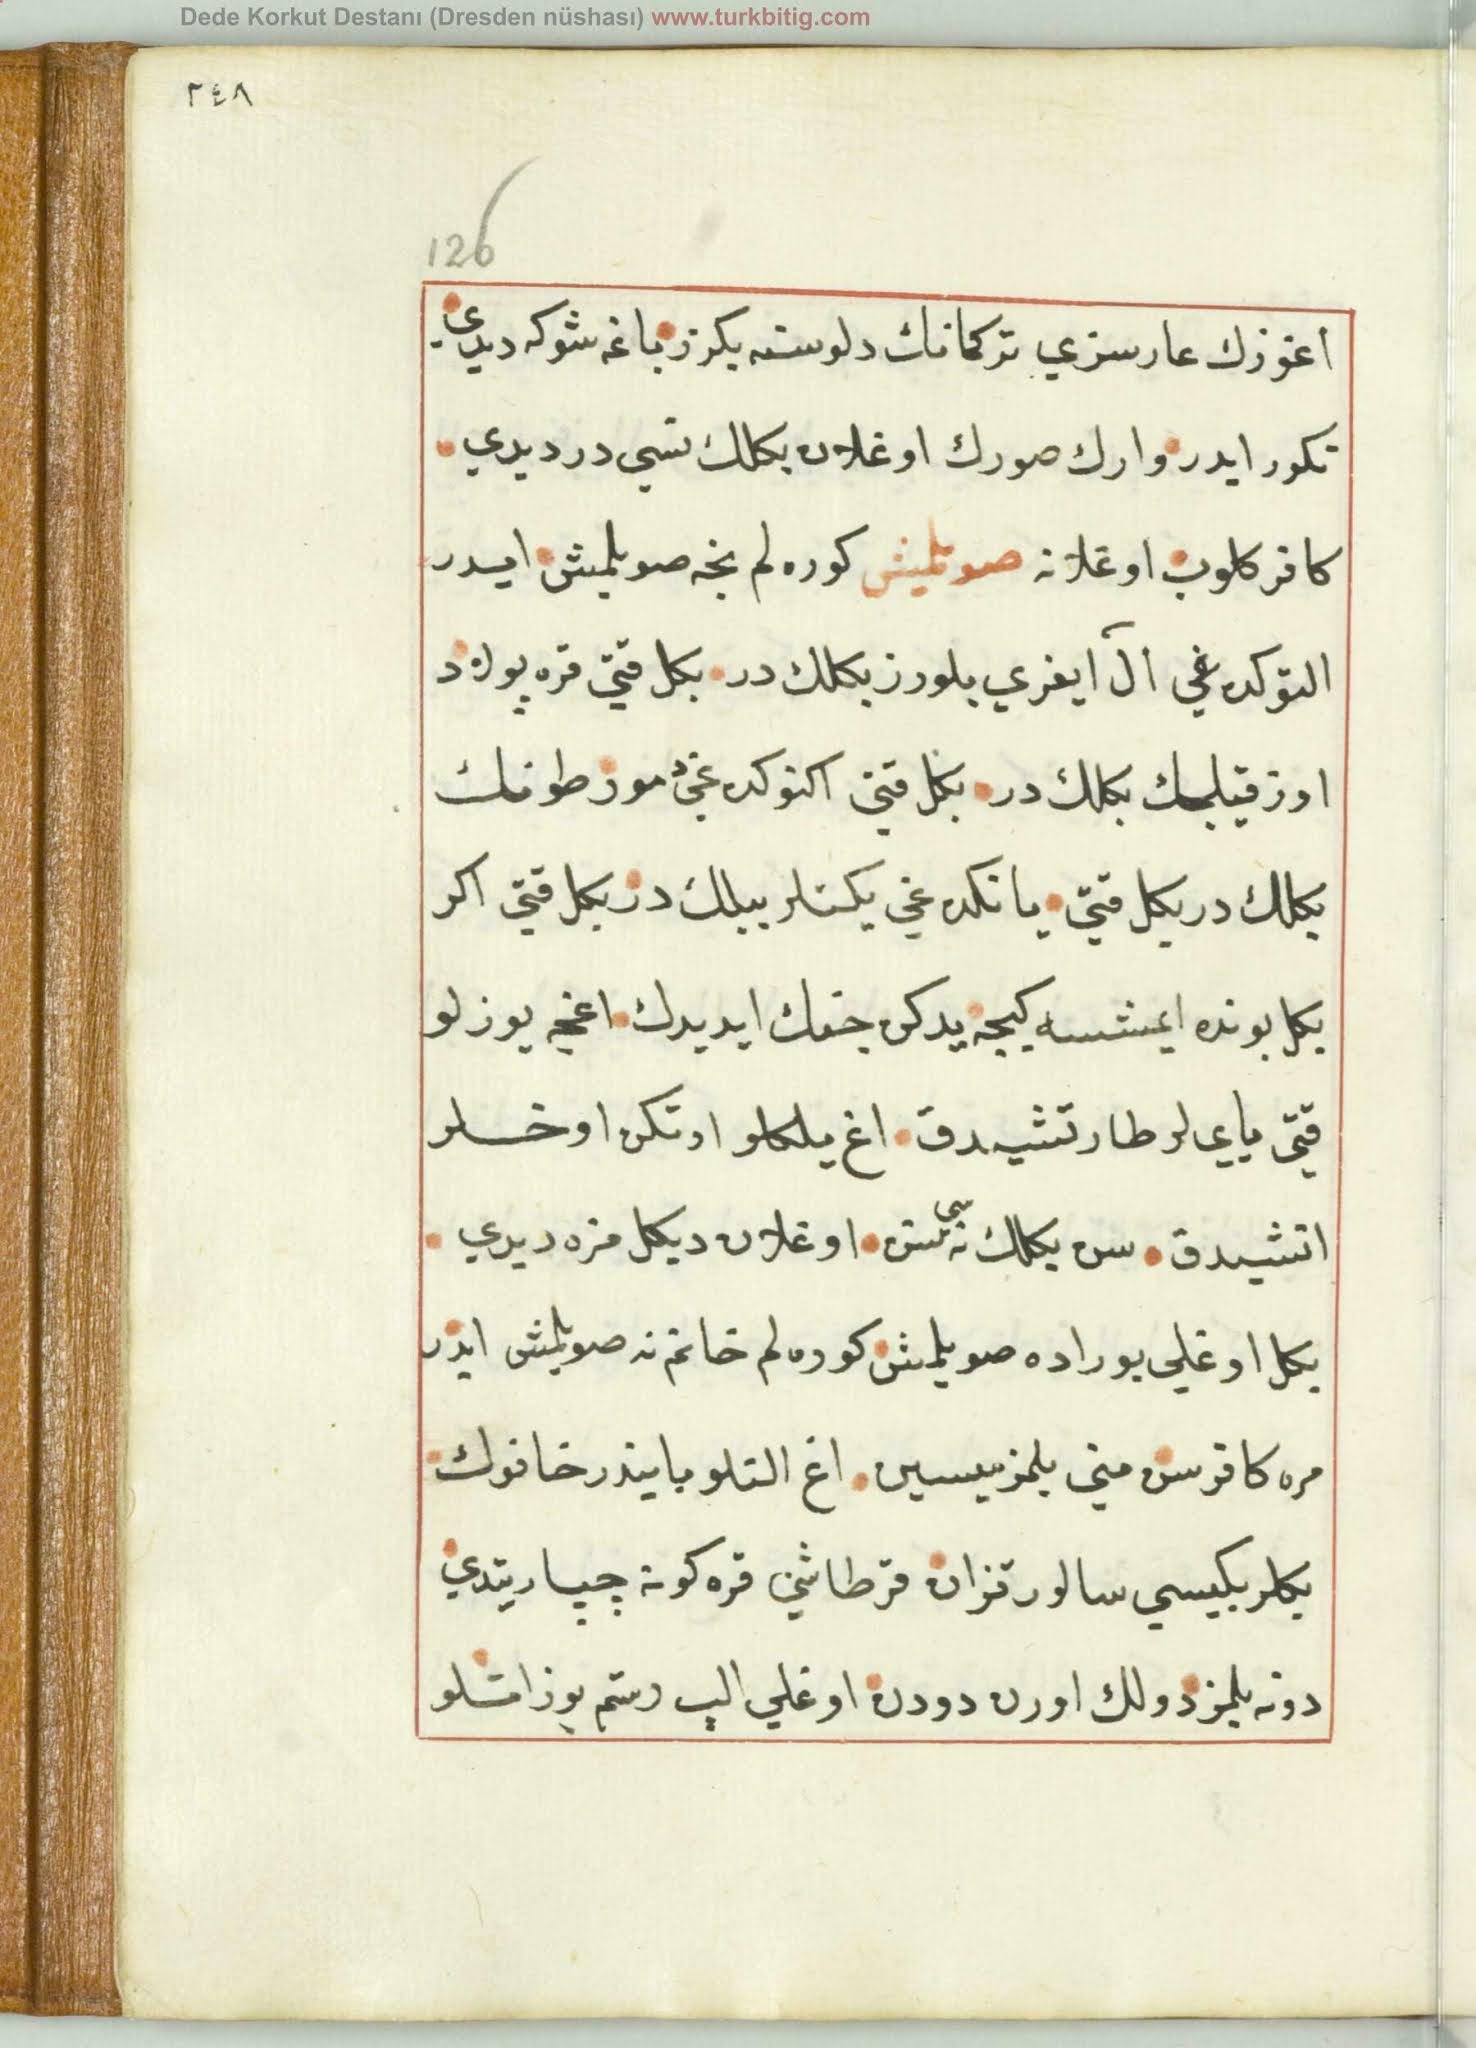 Dede Korkut Destanı (Dresden nüshası) www.turkbitig.com
٢٤٨
126
اغوزك عارسزي تركمانك دلوسنه بكزر باغه شوكه ديدي
تكور ايدر وارك صورك اوغلان بكلك نسي در ديدي
كافر كلوب اوغلانه صويلمش كوره لم نجه صويلمش ايدر
التوكده غي آل ايغري بلورز بكلك در بكل قني قره پولاد
اوز قيلجك بكلك در بكل قني اكنوكده غي دمور طونك
بكلك در بكل قني يانكده غي يكتلر بكلك در بكل قني اكر
بكل بونده ايمشسه كيجه يدكن جنك ايديدك اغجه يوزلو
قتي يايي لر طارتشيدق اغ يلكلو اوتكن اوخلر
اتشيدق سن بكلك نه سي سن اوغلان ديكل مره ديدي
بكل اوغلي بوراده صويلمش كوره لم خانم نه صويلمش ايدر
مره كافر سن مني بلمزميسين اغ التلو بايندر خانوك
بكلر بكيسي سالور قزان قرطاشي قره كونه چپار يتدي
دونه بلمز دولك اورن دودن اوغلي الپ رستم بوز اتلو